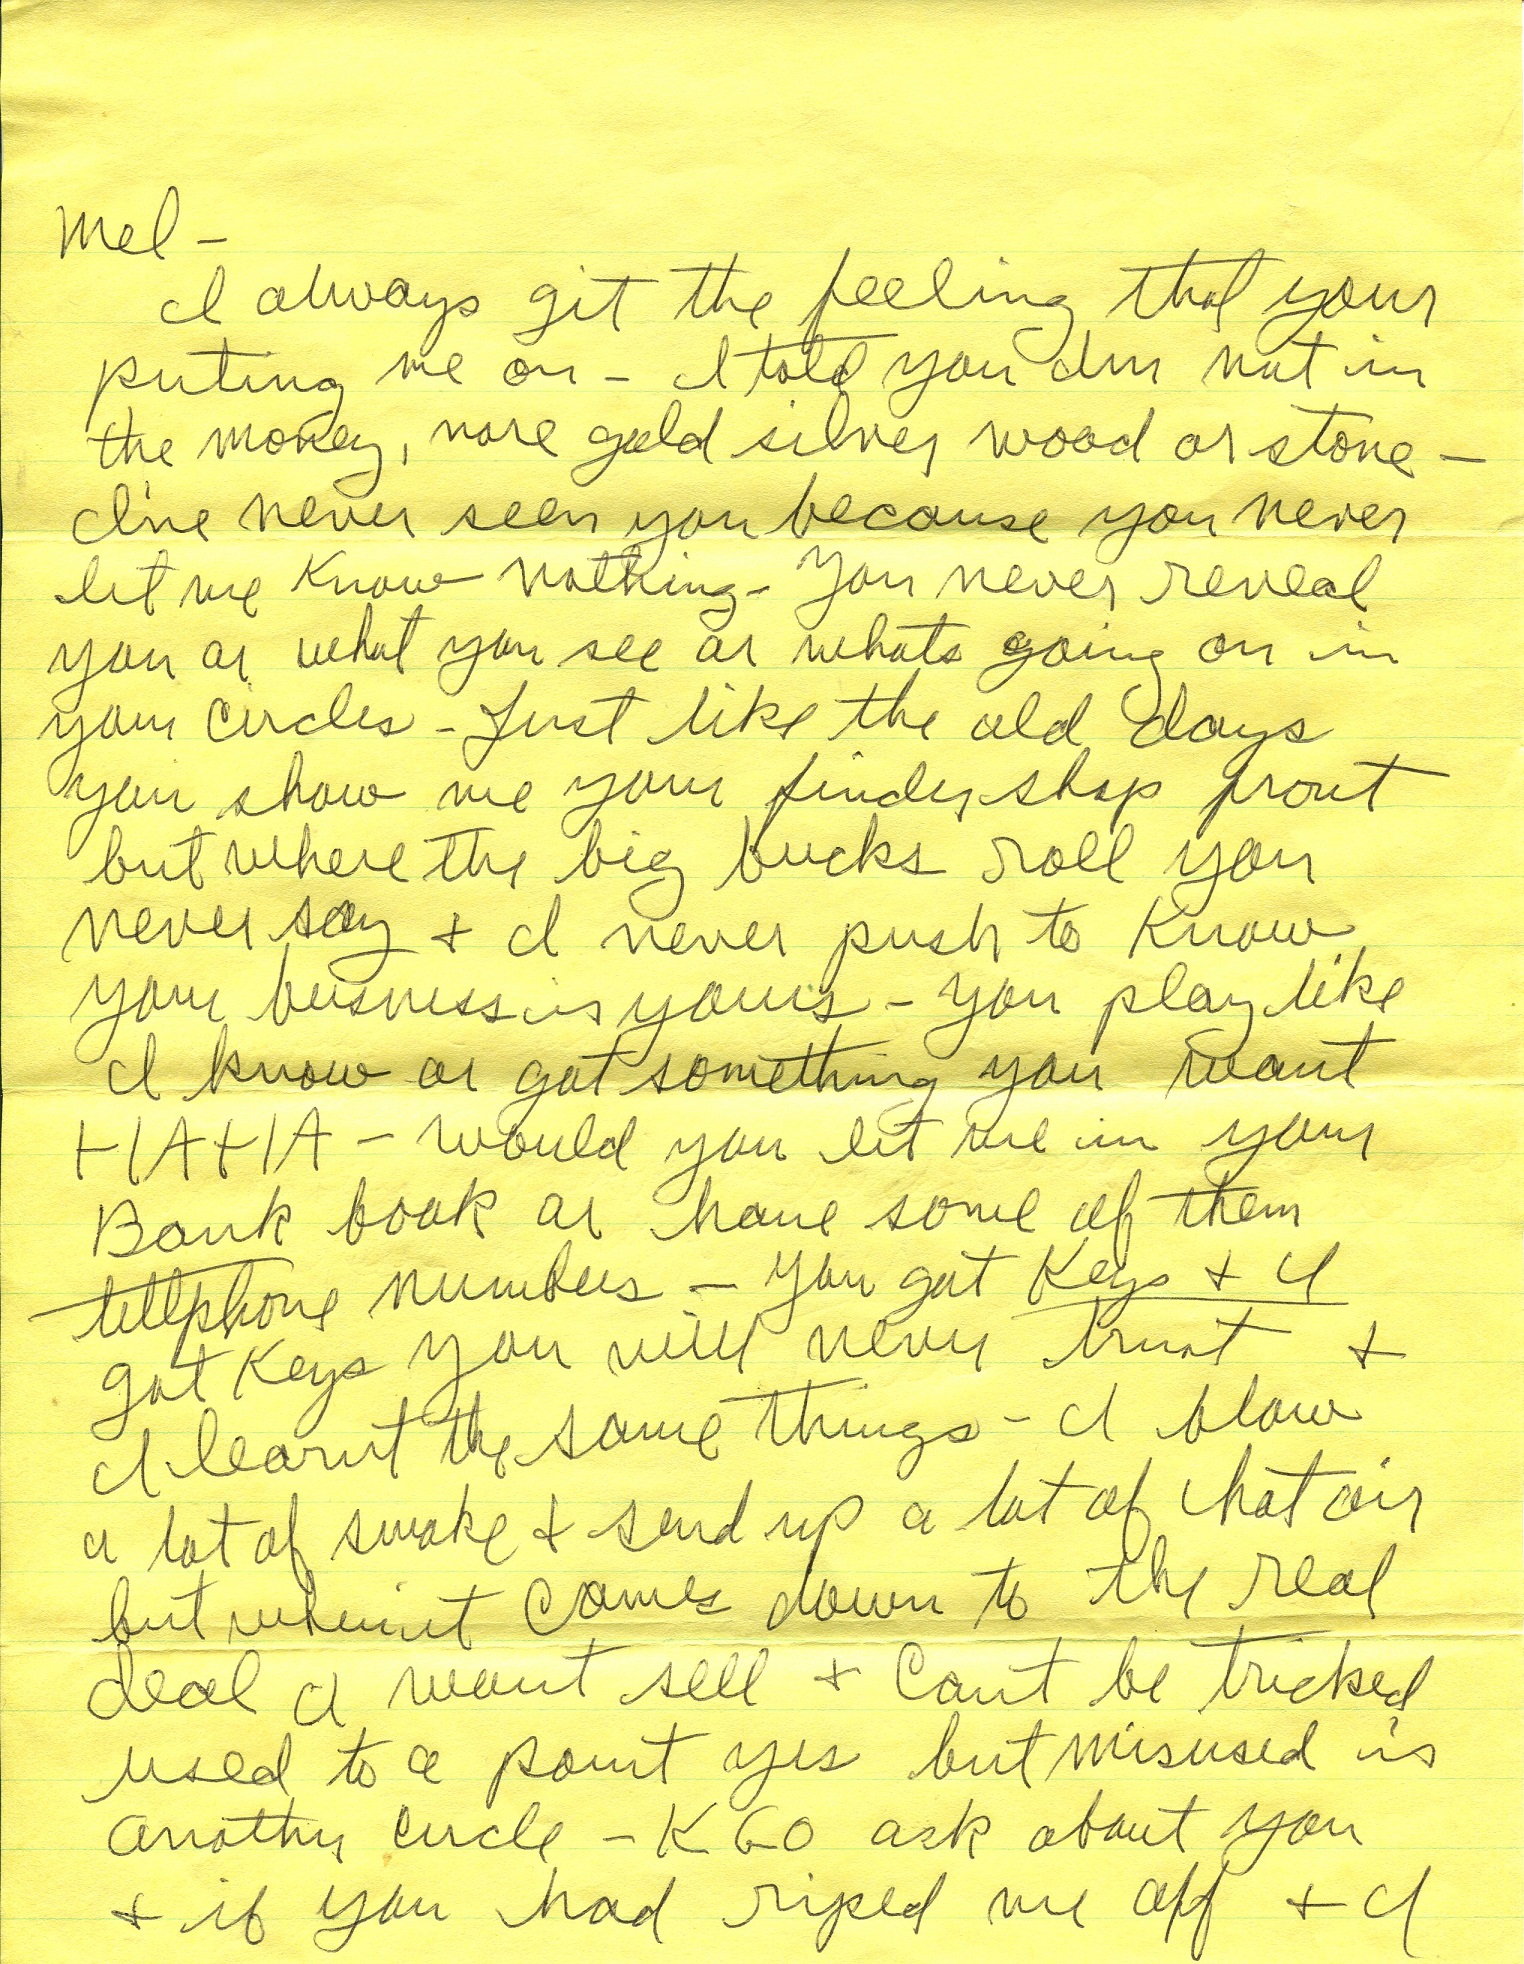 Mel –
I always git the feeling that your
puting me on – I told you Im not in
the money, nore gold silver wood or stone –
I've never seen you because you never
let me know nothing – You never reveal
you or what you see or whats going on in
your circles – Just like the old days
you show me your shop front
but where the big bucks roll you
never say + I never push to know
your buisness is yours – you play like
I know or got something you want
HAHA – would you let me in your
Bank book or have some of them
tellphone numbers – you got Keys + I
got Keys you will never trust +
I learnt the same things – I blow
a lot of smoke + send up a lot of hot air
but when it comes down to the real
deal I wont sell + Cant be tricked
used to a point yes but misused is
another circle – KGO ask about you
+ if you had riped me off + I